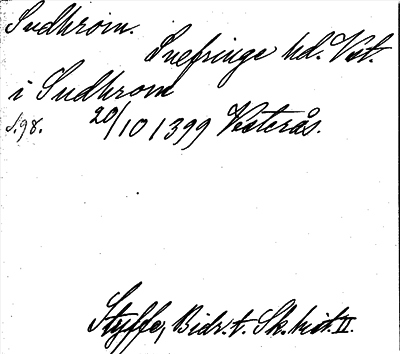 Sudhrom.
Snefringe hd. Vst.
i Sudhrom
s. 98. 20/10 1399 Vesterås.
Styffe, Bidr. t. Sk. hist. II.